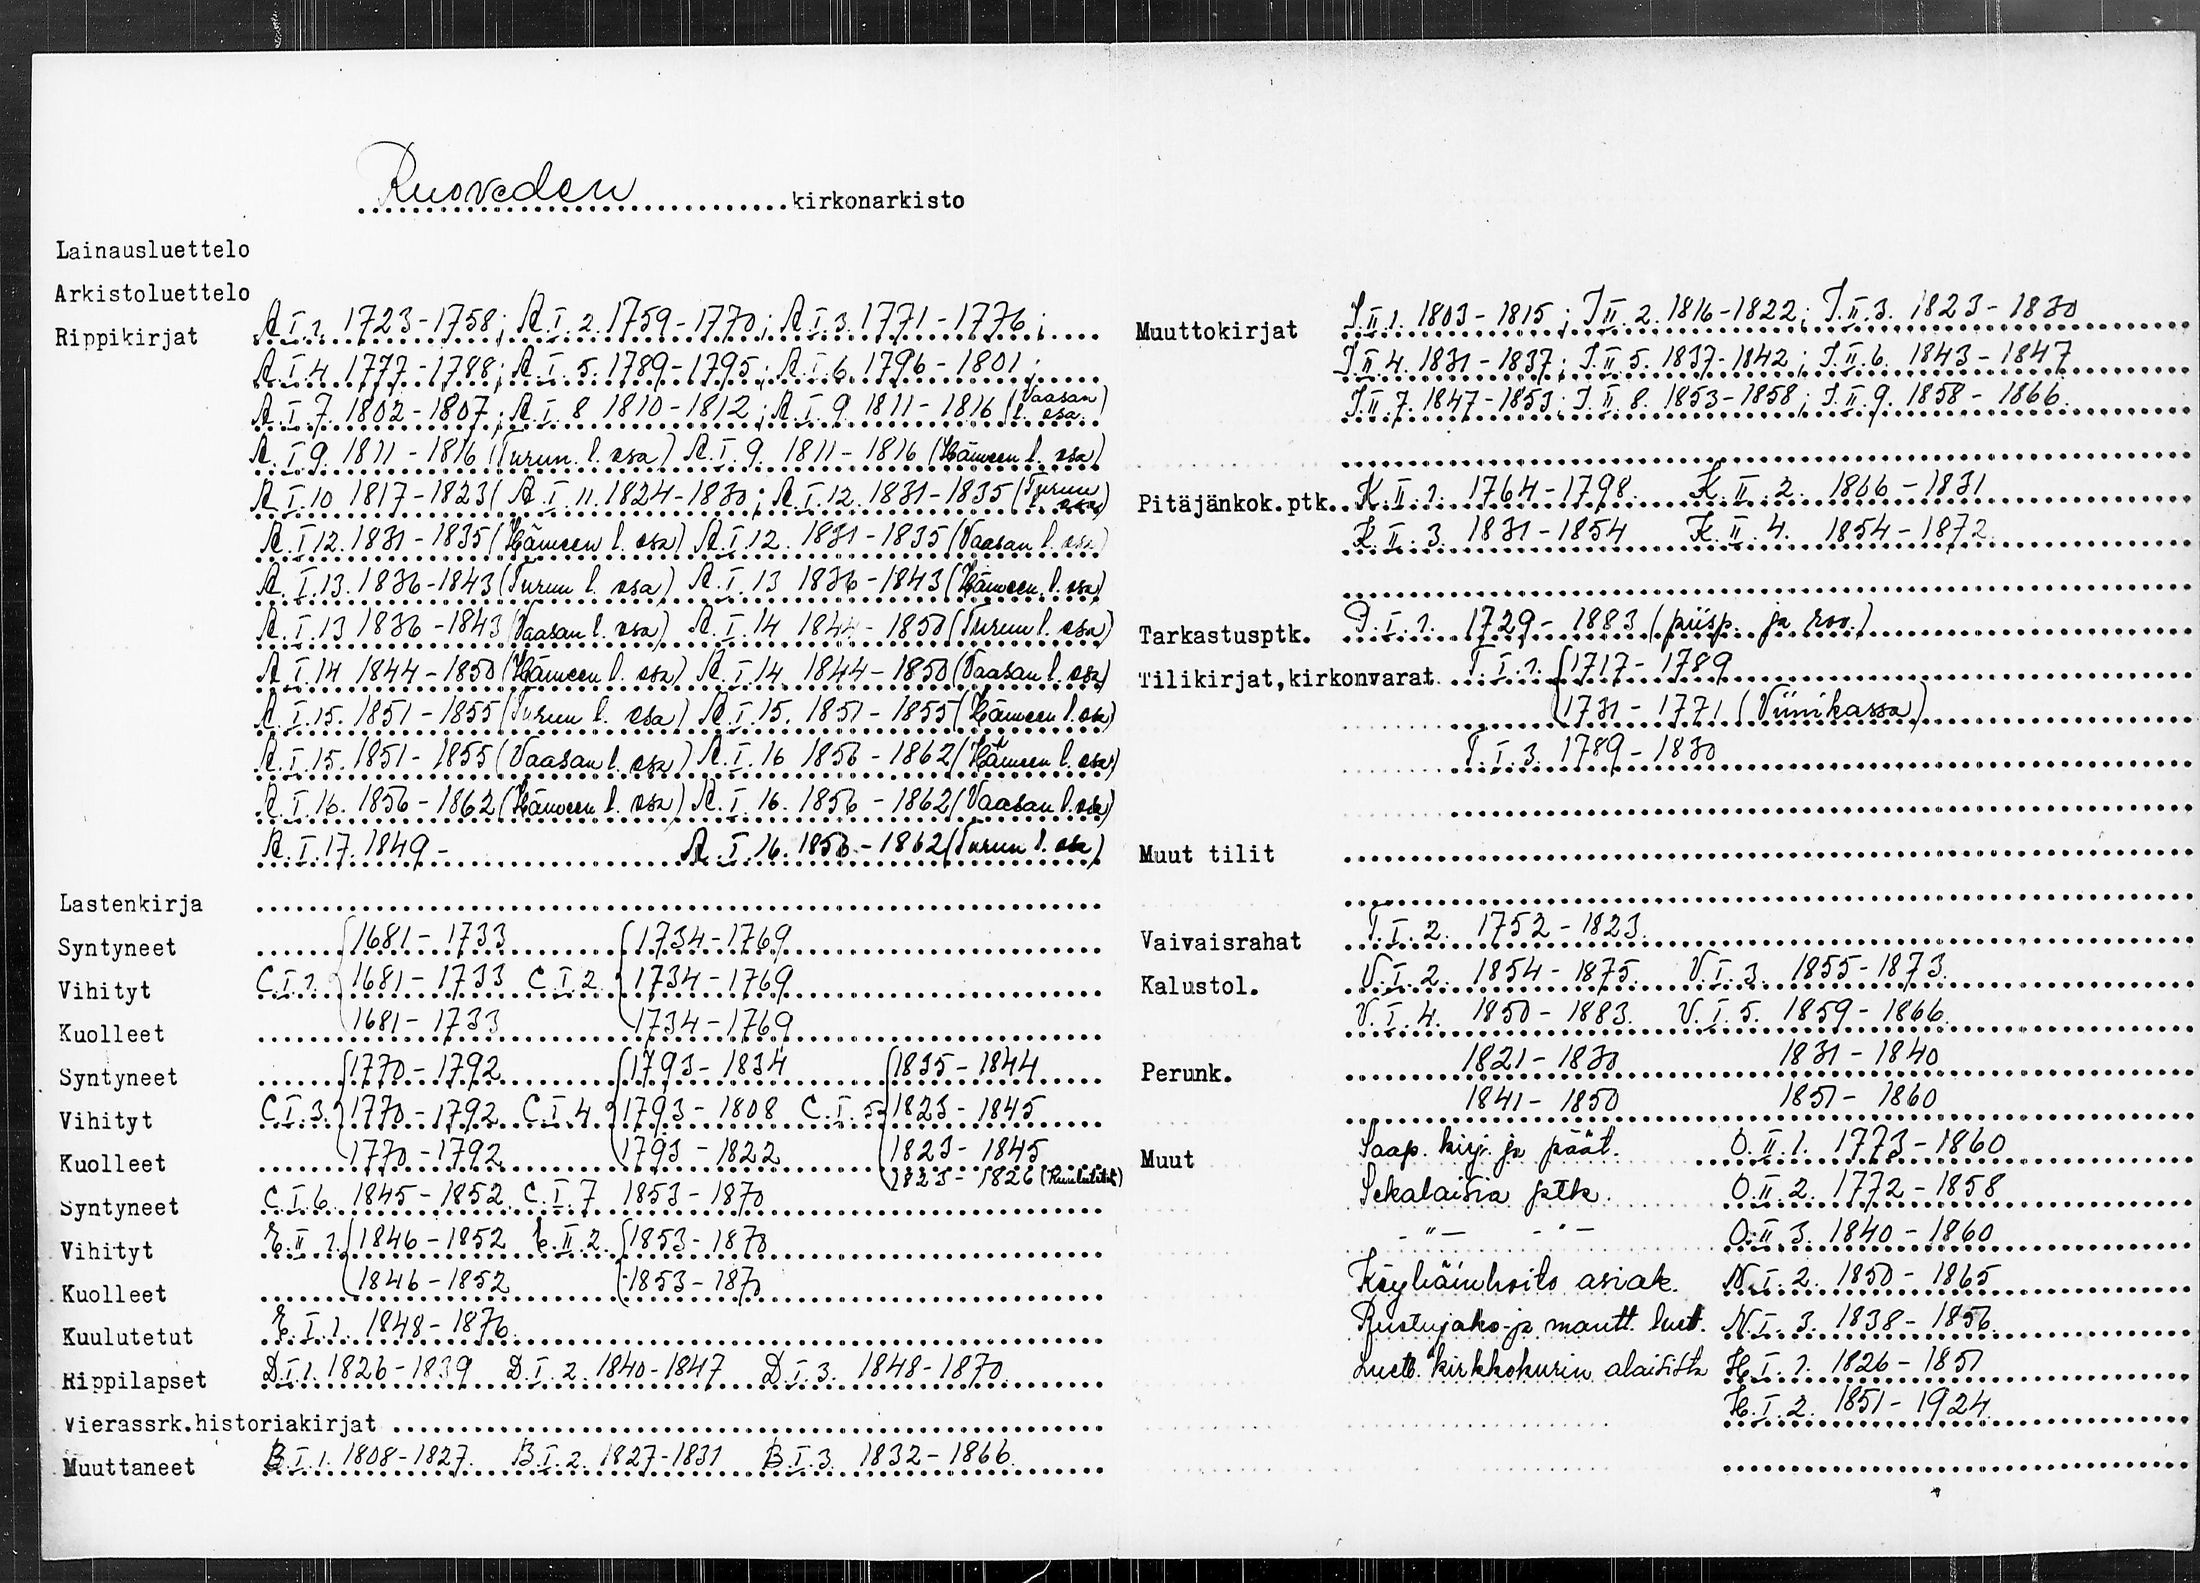 Ruoveden kirkonarkisto
Lainausluettelo
Arkistoluettelo
Rippikirjat A.I.1. 1723-1758; A.I.2. 1759-1770; A.I.3. 1771-1776;
A.I.4 1777-1788; A.I.5. 1789-1795; A.I.6. 1796-1801;
A.I.7. 1802-1807; A.I.8 1810-1812; A.I.9. 1811-1816 (Vaasan l. osa)
A.I.9. 1811-1816 (Turun l. osa) A.I.9. 1811-1816 (Hämeen l. osa)
A.I.10 1817-1823( A.I.11. 1824-1830; A.I.12. 1831-1835 (Turun osa)
A.I.12. 1831-1835 (Hämeen l. osa) A.I.12. 1831-1835 (Vaasan l. osa)
A.I.13. 1836-1843 (Turun l. osa) A.I.13 1836-1843 (Hämeen l. osa)
A.I.13 1836-1843 (Vaasan l. osa) A.I.14 1844-1850 (Turun l. osa)
A.I.14 1844-1850 (Hämeen l. osa) A.I.14 1844-1850 (Vaasan l. osa)
A.I.15. 1851-1855 (Turun l. osa) A.I.15. 1851-1855 (Hämeen l. osa)
A.I.15. 1851-1855 (Vaasan l. osa) A.I.16 1856-1862 (Hämeen l. osa)
A.I.16. 1856-1862 (Hämeen l. osa) A.I.16. 1856-1862 (Vaasan l. osa)
A.I.17. 1849- A.I.16. 1856-1862 (Turun l. osa)
Lastenkirja
Syntyneet 1681-1733 1734-1769
Vihityt C.I.1. 1681-1733 C.I.2. 1734-1769
Kuolleet 1681-1733 1734-1769
Syntyneet 1770-1792 1793-1834 1835-1844
Vihityt C.I.3. 1770-1792 C.I.4. 1793-1808 C.I.5. 1823-1845
Kuolleet 1770-1792 1793-1822 1823-1845
1823-1826 (Kuulutetut)
Syntyneet C.I.6. 1845-1852 C.I.7 1853-1870
Vihityt E.II.1. 1846-1852 E.II.2. 1853-1870
Kuolleet 1846-1852 1853-1870
Kuulutetut E.I.1. 1848-1876
Rippilapset D.I.1. 1826-1839 D.I.2. 1840-1847 D.I.3. 1848-1870
Vierassrk.historiakirjat
Muuttaneet B.I.1. 1808-1827. B.I.2. 1827-1831 B.I.3. 1832-1866.
Muuttokirjat J.II.1. 1803-1815; J.II.2. 1816-1822; J.II.3. 1823-1830
J.II.4. 1831-1837; J.II.5. 1837-1842; J.II.6. 1843-1847
J.II.7. 1847-1853; J.II.8. 1853-1858; J.II.9. 1858-1866.
Pitäjänkok.ptk. K.II.1. 1764-1798. K.II.2. 1866-1831
K.II.3. 1831-1854 K.II.4. 1854-1872.
Tarkastusptk. P.I.1. 1729-1883 (piisp. ja rov.)
Tilikirjat,kirkonvarat T.I.1. 1717-1789
1731-1771 (Viinikassa)
T.I.3. 1789-1830
Muut tilit
Vaivaisrahat T.I.2. 1752-1823.
Kalustol. V.I.2. 1854-1875. V.I.3. 1855-1873.
V.I.4. 1850-1883. V.I.5. 1859-1866.
Perunk. 1821-1830 1831-1840
1841-1850 1851-1860
Muut Saap. kirj. ja päät. O.II.1. 1773-1860
Sekalaisia ptk. O.II.2. 1772-1858
-"- -"- O.II.3. 1840-1860
Köyhäinhoito asiak. N.I.2. 1850-1865
Ruotujako- ja mantt. luet. N.I.3. 1838-1856
Luett. kirkkokurin alaisista H.I.1. 1826-1851
H.I.2. 1851-1924